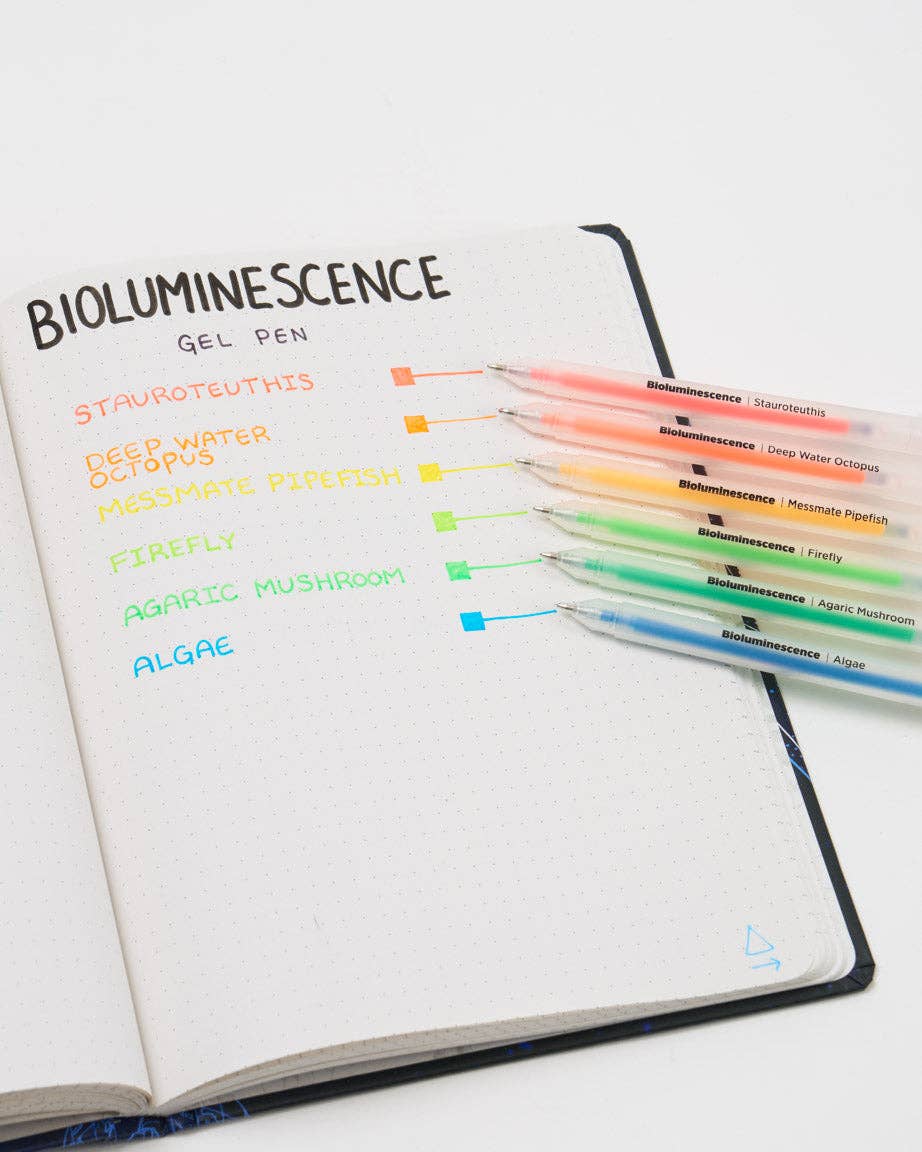 BIOLUMINESCENCE
GEL PEN
STAUROTEUTHIS
DEEP WATER
OCTOPUS
MESSMATE PIPEFISH
FIREFLY
AGARIC MUSHROOM
ALGAE
Bioluminescence | Stauroteuthis
Bioluminescence | Deep Water Octopus
Bioluminescence | Messmate Pipefish
Bioluminescence | Firefly
Bioluminescence | Agaric Mushroom
Bioluminescence | Algae